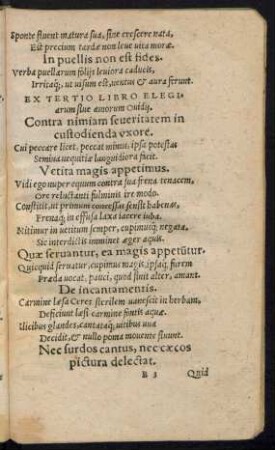 Sponte fluent matura sua, sine crescere nata,
Est precium tardæ non leue uita moræ.
In puellis non est fides.
Verba puellarum folijs leuiora caducis,
Irritaq́;, ut uisum est, uentus & aura ferunt.
EX TERTIO LIBRO ELEGI⸗
arum siue amorum Ouidij.
Contra nimiam seueritatem in
custodienda vxore.
Cui peccare licet, peccat minus, ipsa potestas
Semina nequitiæ languidiora facit.
Vetita magis appetimus.
Vidi ego nuper equum contra sua frena tenacem,
Ore reluctanti fulminis ire modo.
Constitit, ut primum concessas sensit habenas,
Frenaq́; in effusa laxa iacere iuba.
Nitimur in uetitum semper, cupimusq́; negata,
Sic interdictis imminet æger aquis.
Quæ seruantur, ea magis appetũtur.
Quicquid seruatur, cupimus magis, ipsaq́; furem
Præda uocat, pauci, quod sinit alter, amant.
De incantamentis.
Carmine læsa Ceres sterilem uanescit in herbam,
Deficiunt læsi carmine fontis aquæ.
Ilicibus glandes, cantataq́; uitibus uua
Decidit, & nullo poma mouente fluunt.
Nec surdos cantus, nec cæcos
pictura delectat.
B 3
Quid